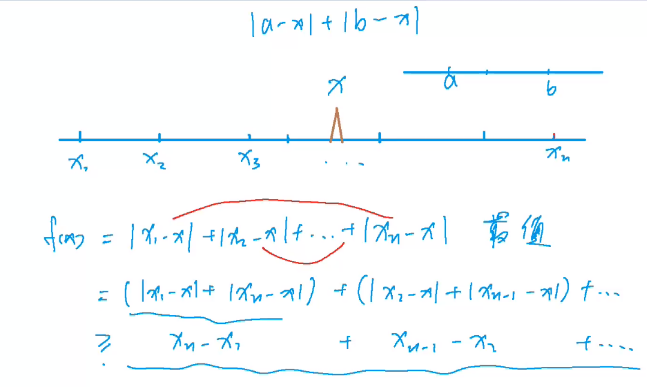 |a-x|+|b-x|
a b
x
x₁ x₂ x₃ ... xₙ
f(x) = |x₁-x|+|x₂-x|+...+|xₙ-x| 最值
= (|x₁-x|+|xₙ-x|) + (|x₂-x|+|xₙ₋₁-x|) + ...
≥ xₙ-x₁ + xₙ₋₁-x₂ + ....